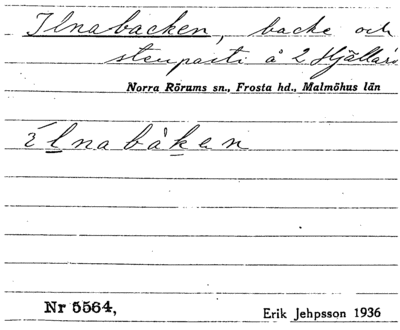 Ilnabacken, backe och
stenparti å 2 Hjällarö
Norra Rörums sn., Frosta hd., Malmöhus län
ìlnabåken
Nr 5564,
Erik Jehpsson 1936